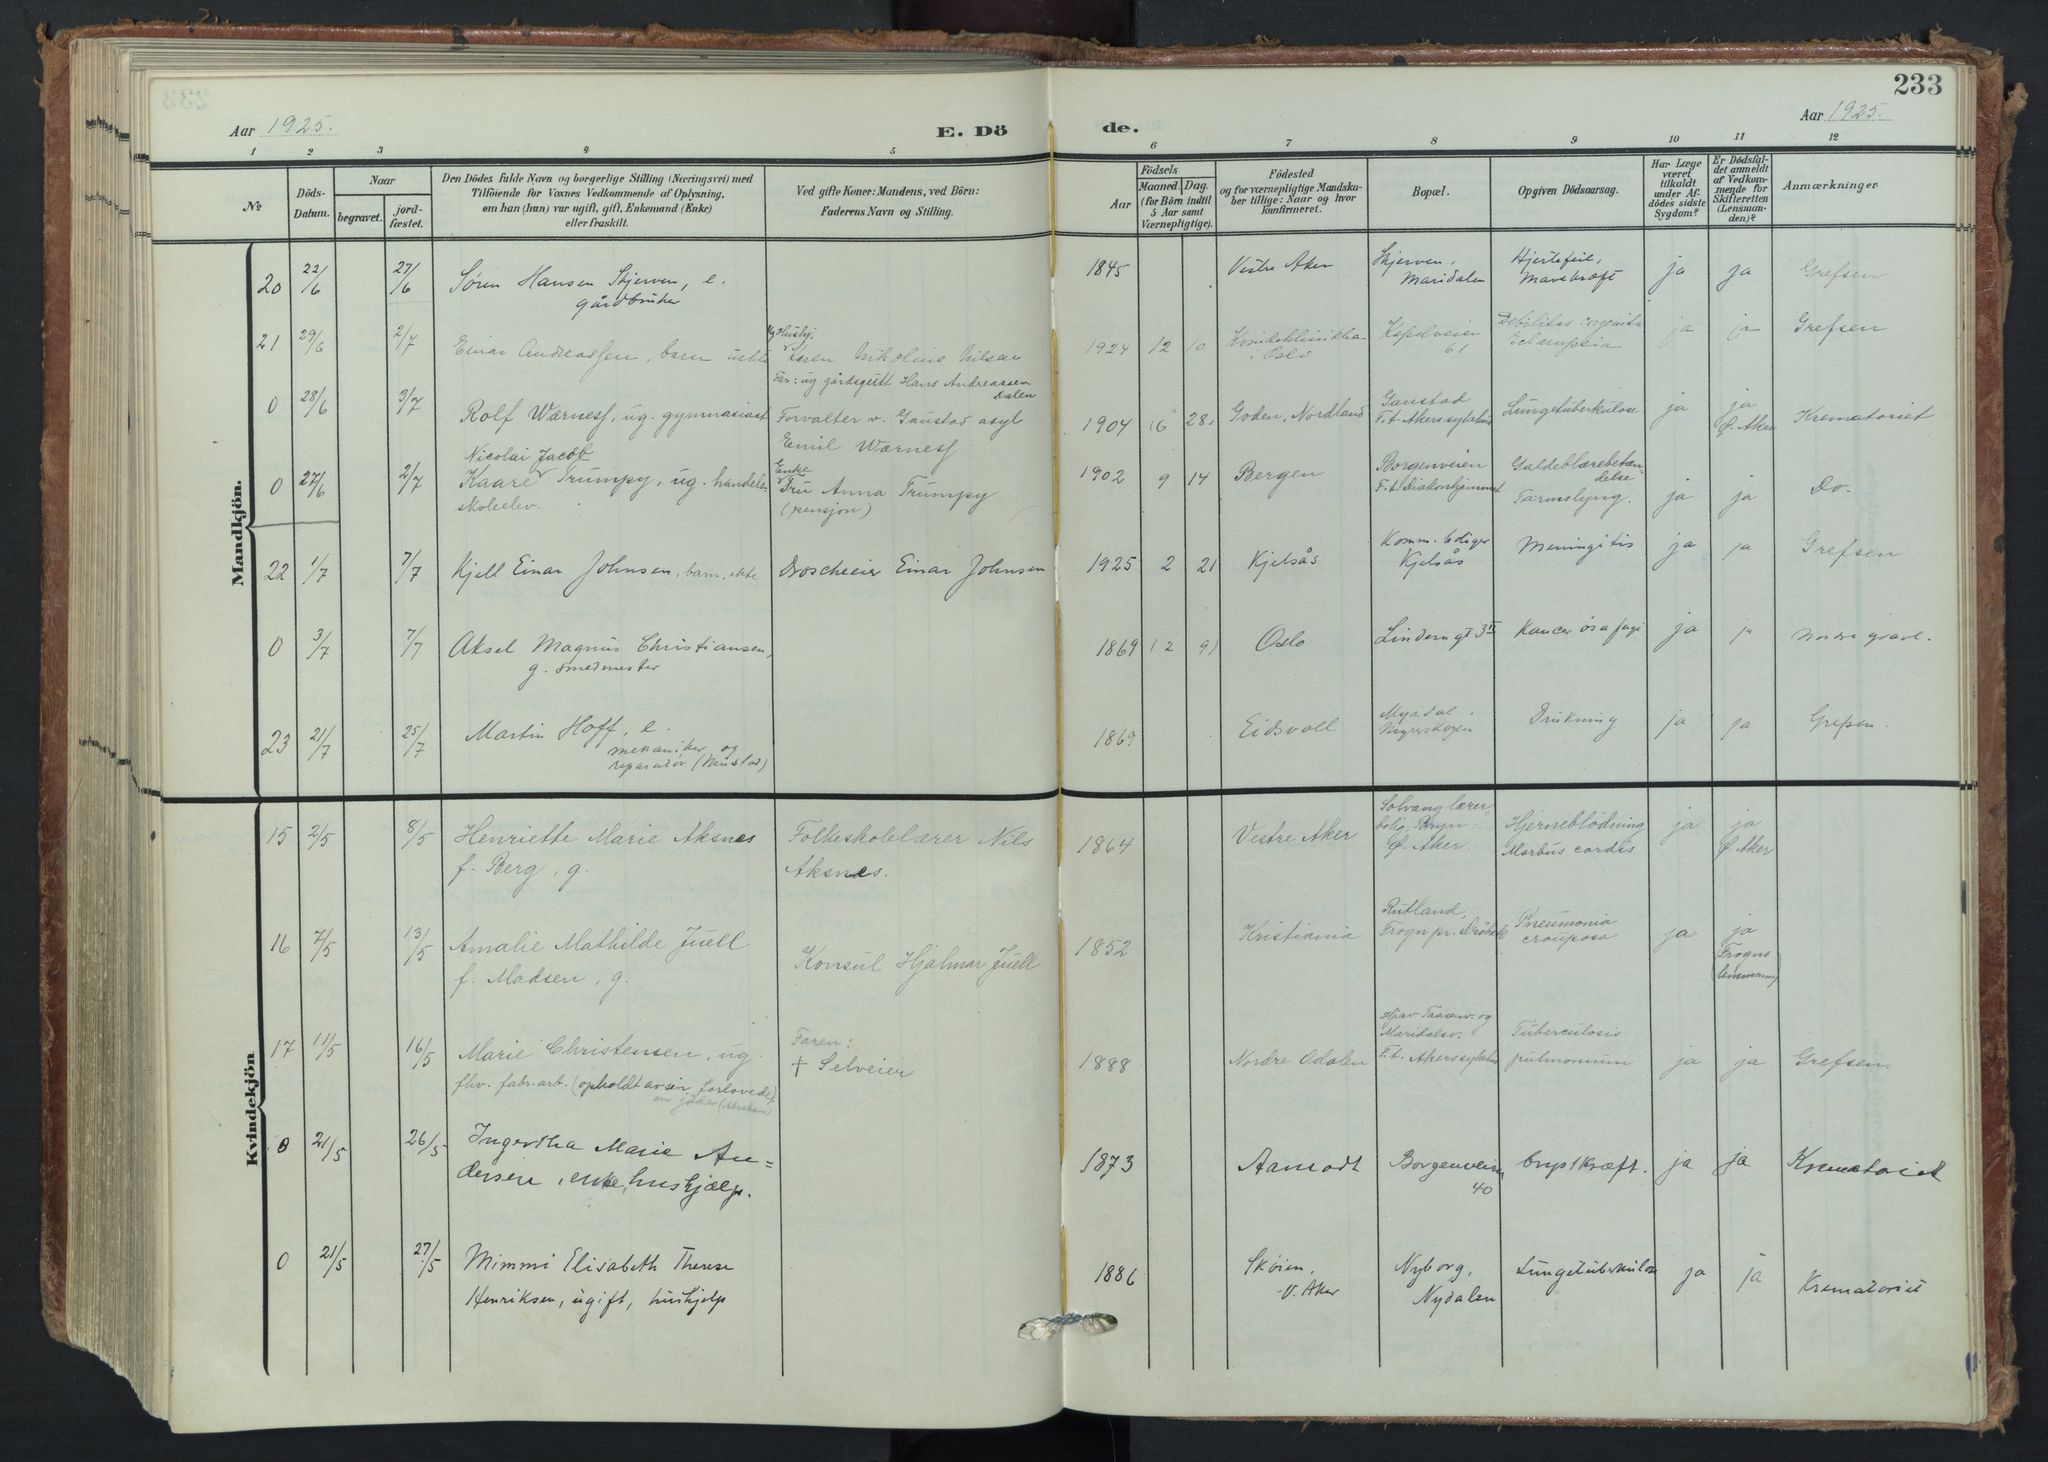 233
Aar 1925. E. Dö de. Aar 1925.
1 2 3 4 5 6 7 8 9 10 11 12
No. Döds-Datum. Naar begravet. jord-fæstet. Den Dödes fulde Navn og borgerlige Stilling (Næringsvei) med Tilföiende for Voxnes Vedkommende af Oplysning, om han (hun) var ugift, gift, Enkemand (Enke) eller fraskilt. Ved gifte Koner: Mandens, ved Börn: Faderens Navn og Stilling. Födsels Aar Maaned. Dag. (for Börn indtil 5 Aar samt Værnepligtige). Födested og for værnepligtige Mandskaber tillige: Naar og hvor konfirmeret. Bopæl. Opgiven Dödsaarsag. Har Læge været tilkaldt under Afdödes sidste Sygdom? Er Dödsfaldet anmeldt af Vedkommende for Skifteretten (Lensmanden)? Anmærkninger.
Mandkjön.
20 22/6 27/6 Søren Hansen Skjerven, e. gårdbruker 1845 Vestre Aker Skjerven, Maridalen Hjertefeil, Mavekræft ja ja Grefsen
21 29/6 2/7 Einar Andreassen, barn uekte Ug. Hushj. Karen Nikoline Nilsen
Far: ug. gårdsgutt Hans Andreassen Dalen 1924 12 10 Kvindeklinikken i Oslo Kapelveien 61 Debilitas congenita Eclampsia ja ja Grefsen
0 28/6 3/7 Rolf Wærness, ug. gymnasiast Forvalter v. Gaustad asyl Emil Wærness 1904 (6 28) Goden, Nordland Gaustad F.t. Akers sykehus Lungetuberkulose ja ja Ø. Aker Krematoriet
0 27/6 2/7 Nicolai Jacob Kaare Trumpy, ug. handelsskoleelev. Enke Fru Anna Trumpy (pensjon) 1902 9 14 Bergen Borgenveien F.t. Diakonhjemmet Galdeblærebetændelse Tarmslyng. ja ja Do.
22 1/7 7/7 Kjell Einar Johnsen, barn, ekte Droscheeier Einar Johnsen 1925 2 21 Kjelsås Komm. boliger Kjelsås Meningitis ja ja Grefsen
0 3/7 7/7 Aksel Magnus Christiansen, g. smedmester 1869 (2 9) Oslo Lindern gt 3 II Kancer øsafagi ja ja Nordre gravl.
23 21/7 25/7 Martin Hoff, e. mekaniker og reparatør (Mustad) 1869 Eidsvoll Myrdal. Drukning ja ja Grefsen.
Kvindekjön
15 2/5 8/5 Henriette Marie Aksnes f. Berg, g. Folkeskolelærer Nils Aksnes. 1864 Vestre Aker Solvang lærerbolig, Bryn Ø. Aker. Hjerneblödning Morbus cordis ja ja Ø. Aker
16 7/5 13/5 Amalie Mathilde Juell f. Madsen, g. Konsul Hjalmar Juell 1852 Kristiania Rutland, Frogn pr. Drøbak Pneumonia crouposa ja ja (Frogns lensmann)
17 11/5 16/5 Marie Christensen, ug. fhv. fabr.arb. (opholdt av sin forlovede), en jøde (Abraham) Faren: † Selveier 1888 Nordre Odalen Hj. av Taasenv. og Maridalsv. F.t. Akers sykehus Tuberculosis pulmonium ja ja Grefsen
0 21/5 26/5 Ingertha Marie Andersen, enke, huskjælp. 1873 Aamodt Borgenveien 40 Brystkræft. ja ja Krematoriet
0 21/5 27/5 Mimmi Elisabeth Therese Henriksen, ugift, hushjelp 1886 Skøien, V. Aker Nyborg, Nydalen Lungetuberkulose ja ja Krematoriet